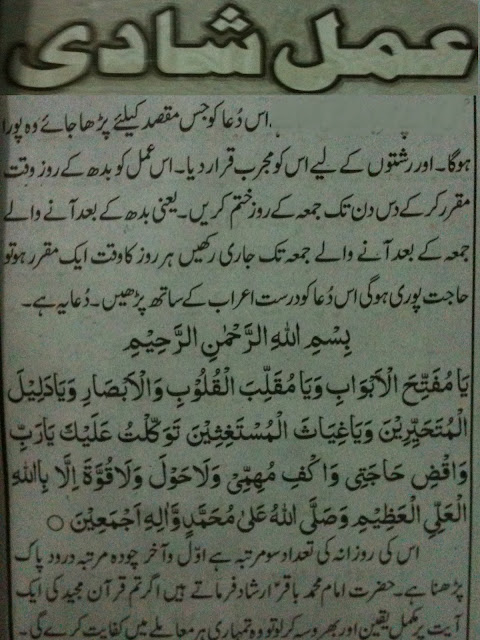 عمل شادی
اس دُعا کو جس مقصد کیلئے پڑھا جائے وہ پورا
ہوگا۔ اور رشتوں کے لیے اس کو مجرب قرار دیا۔ اس عمل کو بدھ کے روز وقت
مقرر کر کے دس دن تک جمعہ کے روز ختم کریں۔ یعنی بدھ کے بعد آنے والے
جمعہ کے بعد آنے والے جمعہ تک جاری رکھیں ہر روز کا وقت ایک مقرر ہو تو
حاجت پوری ہوگی اس دُعا کو درست اعراب کے ساتھ پڑھیں۔ دُعا یہ ہے۔
بِسْمِ اللهِ الرَّحْمٰنِ الرَّحِيْمِ
يَا مُفَتِّحَ الْاَبْوَابِ وَيَا مُقَلِّبَ الْقُلُوْبِ وَالْاَبْصَارِ وَيَا دَلِيْلَ
الْمُتَحَيِّرِيْنَ وَيَا غِيَاثَ الْمُسْتَغِثِيْنَ تَوَكَّلْتُ عَلَيْكَ يَارَبِّ
وَاقْضِ حَاجَتِىْ وَاكْفِ مُهِمِّىْ وَلَا حَوْلَ وَلَا قُوَّةَ اِلَّا بِاللهِ
الْعَلِّىِ الْعَظِيْمِ وَصَلَّى اللهُ عَلىٰ مُحَمَّدٍ وَّاٰلِهٖ اَجْمَعِيْنَ ○
اس کی روزانہ کی تعداد سو مرتبہ ہے اوّل و آخر چودہ مرتبہ درود پاک
پڑھنا ہے۔ حضرت امام محمد باقرؑ ارشاد فرماتے ہیں اگر تم قرآن مجید کی ایک
آیت پر مکمل یقین اور بھروسہ کر لو تو وہ تمہاری ہر معاملے میں کفایت کرے گی۔